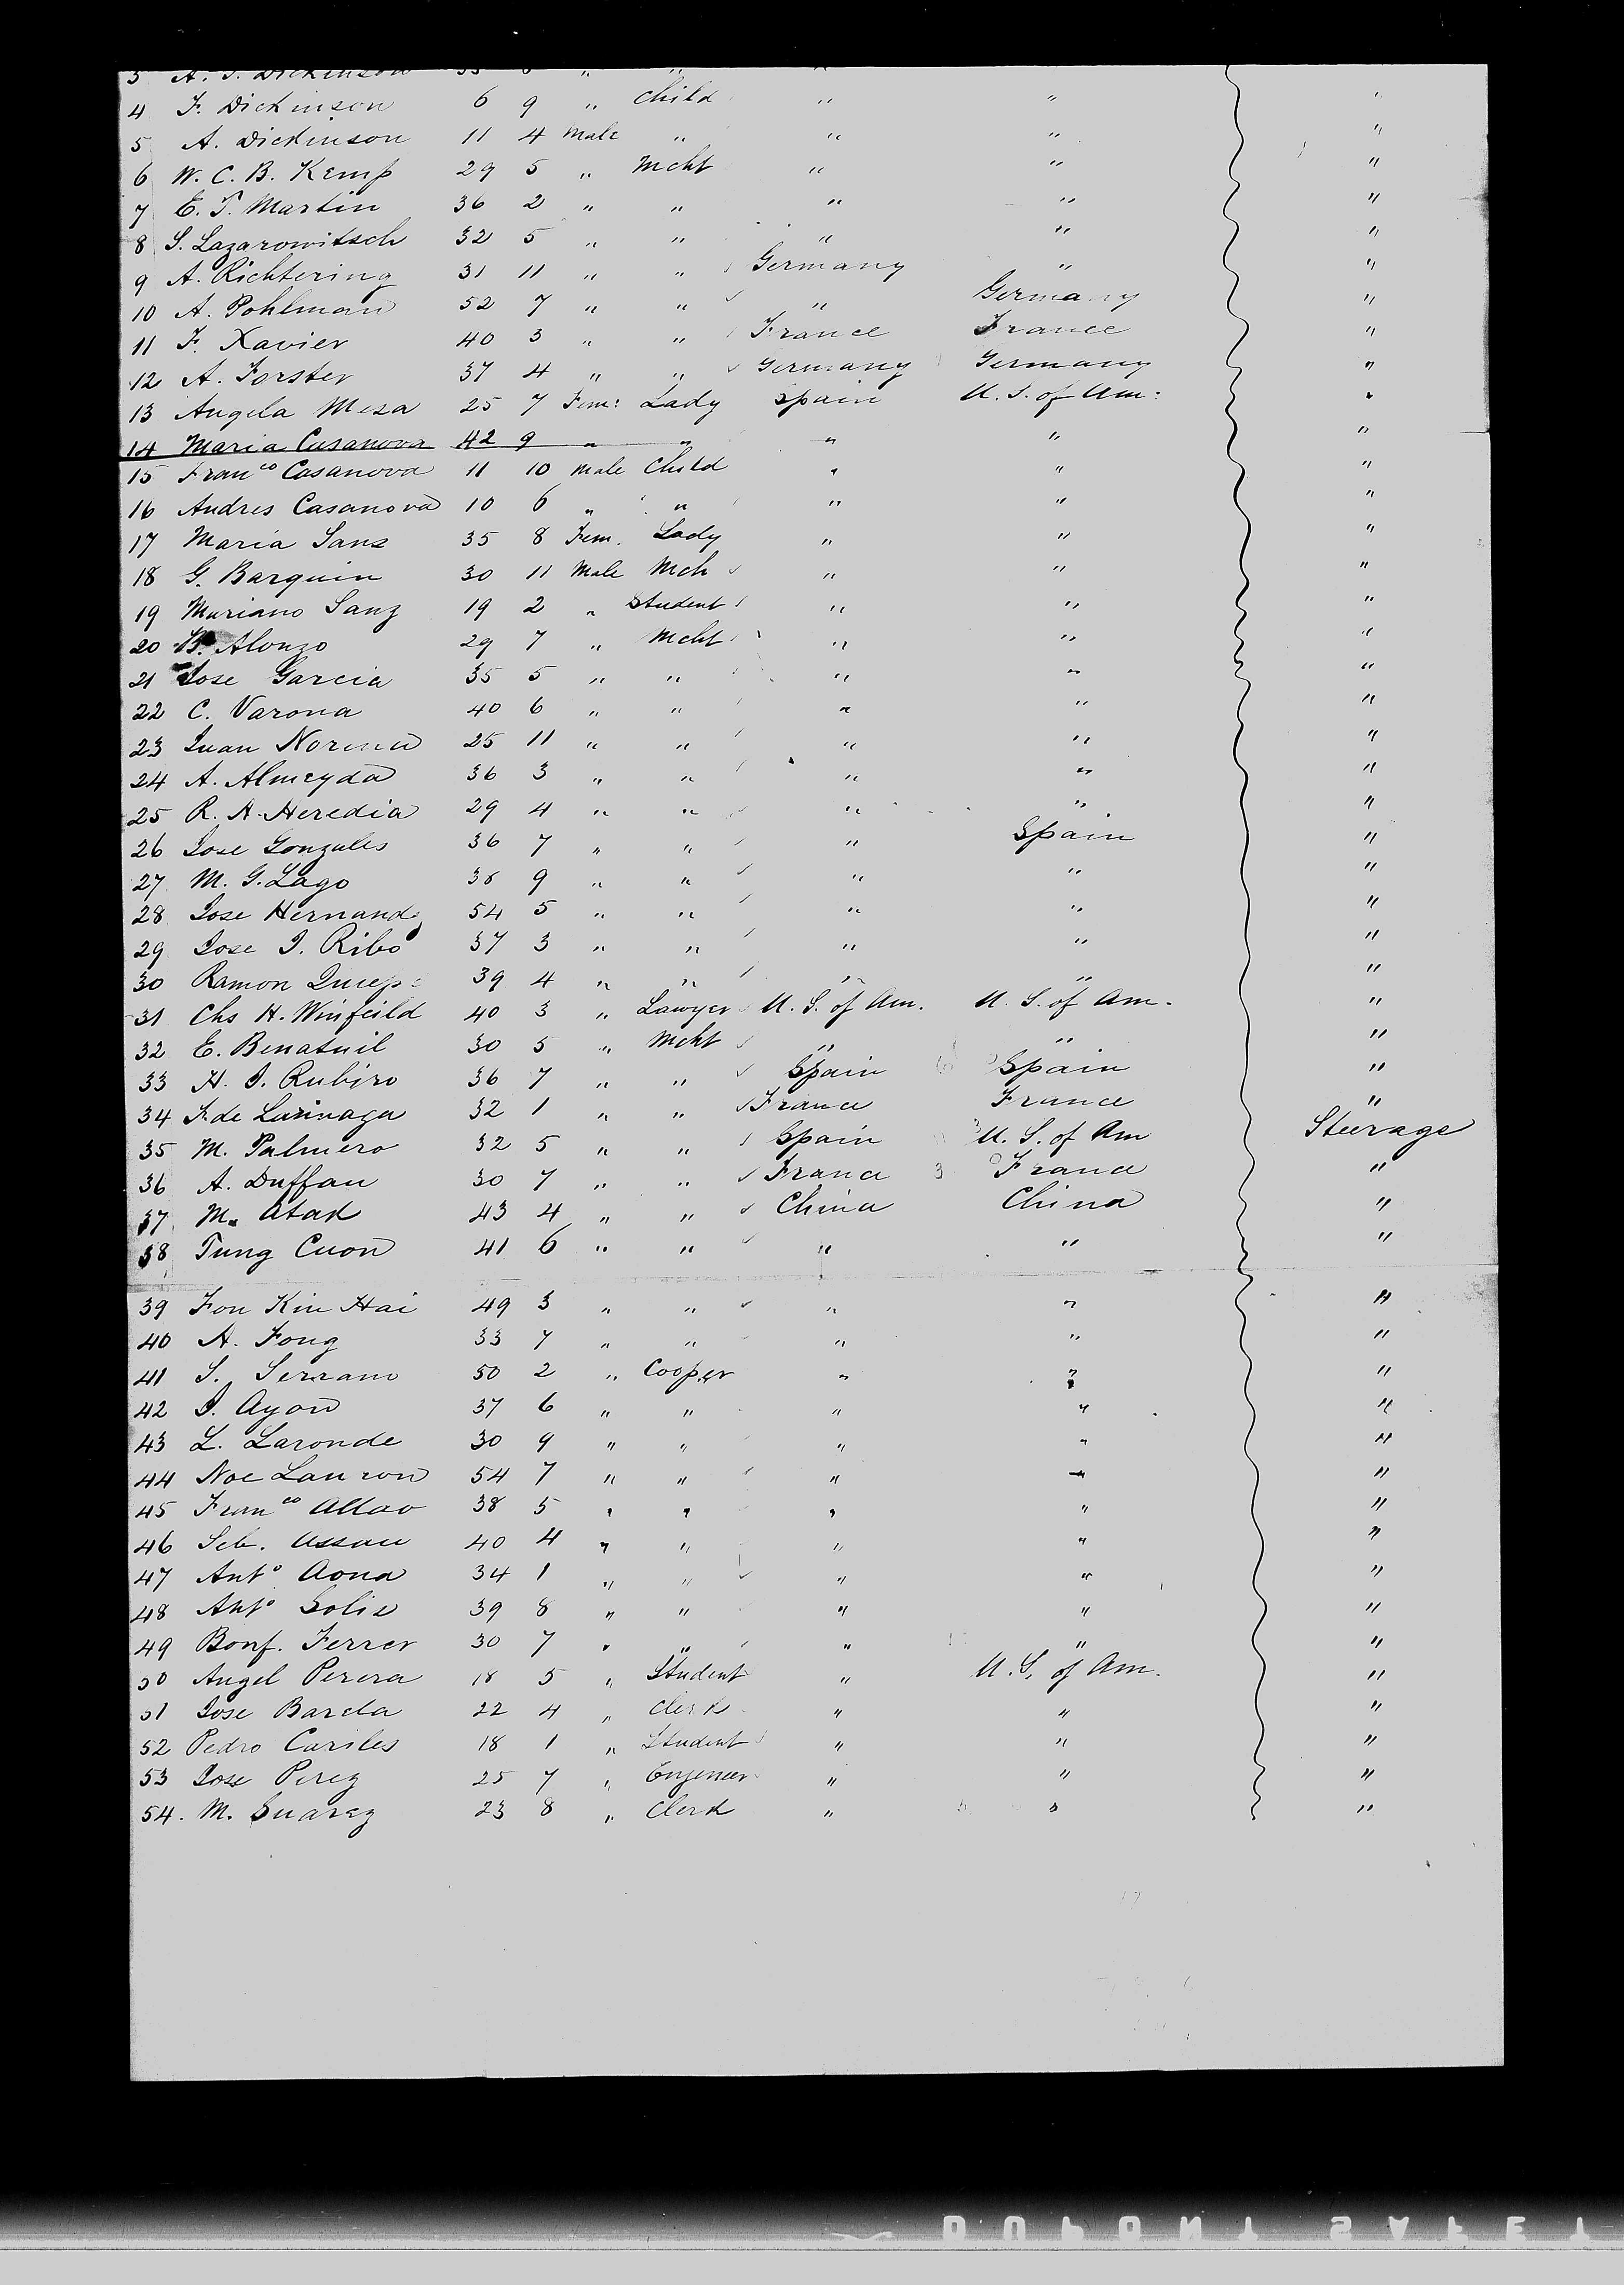 3 A. T. Dickinson 35 6 " " "
4 F. Dickinson 6 9 " Child " " "
5 A. Dickinson 11 4 Male " " " "
6 W. C. B. Kemp 29 5 " Mcht " " "
7 E. T. Martin 36 2 " " " " "
8 S. Lazarowitsch 32 5 " " " " "
9 A. Richtering 31 11 " " Germany " "
10 A. Pohlman 52 7 " " " Germany "
11 F. Xavier 40 3 " " France France "
12 A. Forster 37 4 " " Germany Germany "
13 Angela Mesa 25 7 Fem: Lady Spain U. S. of Am: "
14 Maria Casanova 42 9 " " " " "
15 Franco Casanova 11 10 Male Child " " "
16 Andres Casanova 10 6 " " " " "
17 Maria Sans 35 8 Fem. Lady " " "
18 G. Barquin 30 11 Male Mch " " "
19 Mariano Sanz 19 2 " Student " " "
20 Alonzo 29 7 " Mcht " " "
21 Jose Garcia 35 5 " " " " "
22 C. Varona 40 6 " " " " "
23 Juan Norma 25 11 " " " " "
24 A. Almeyda 36 3 " " " " "
25 R. A. Heredia 29 4 " " " " "
26 Jose Gonzales 36 7 " " " Spain "
27 M. G. Lago 38 9 " " " " "
28 Jose Hernandz 54 5 " " " " "
29 Jose J. Ribo 37 3 " " " " "
30 Ramon 39 4 " " " " "
31 Chs H. Winfeild 40 3 " Lawyer U. S. of Am. U. S. of Am. "
32 E. Benatuil 30 5 " Mcht " " "
33 H. J. Rubiro 36 7 " " Spain Spain "
34 F. de Larinaga 32 1 " " France France "
35 M. Palmero 32 5 " " Spain U. S. of Am Steerage
36 A. Duffau 30 7 " " France France "
37 M. Atak 43 4 " " China China "
38 Tung Cuon 41 6 " " " " "
39 Fon Kin Hai 49 3 " " " " "
40 A. Fong 33 7 " " " " "
41 S. Serrano 50 2 " Cooper " " "
42 J. Ayon 37 6 " " " " "
43 L. Laronde 30 9 " " " " "
44 Noe Lauron 54 7 " " " " "
45 Franco Allao 38 5 " " " " "
46 Seb. Assau 40 4 " " " " "
47 Anto Aona 34 1 " " " " "
48 Anto Solis 39 8 " " " " "
49 Bonf. Ferrer 30 7 " " " " "
50 Angel Perera 18 5 " Student " U. S. of Am. "
51 Jose Barcla 22 4 " Clerk " " "
52 Pedro Cariles 18 1 " Student " " "
53 Jose Perez 25 7 " Engeneer " " "
54. M. Suarez 23 8 " Clerk " " "